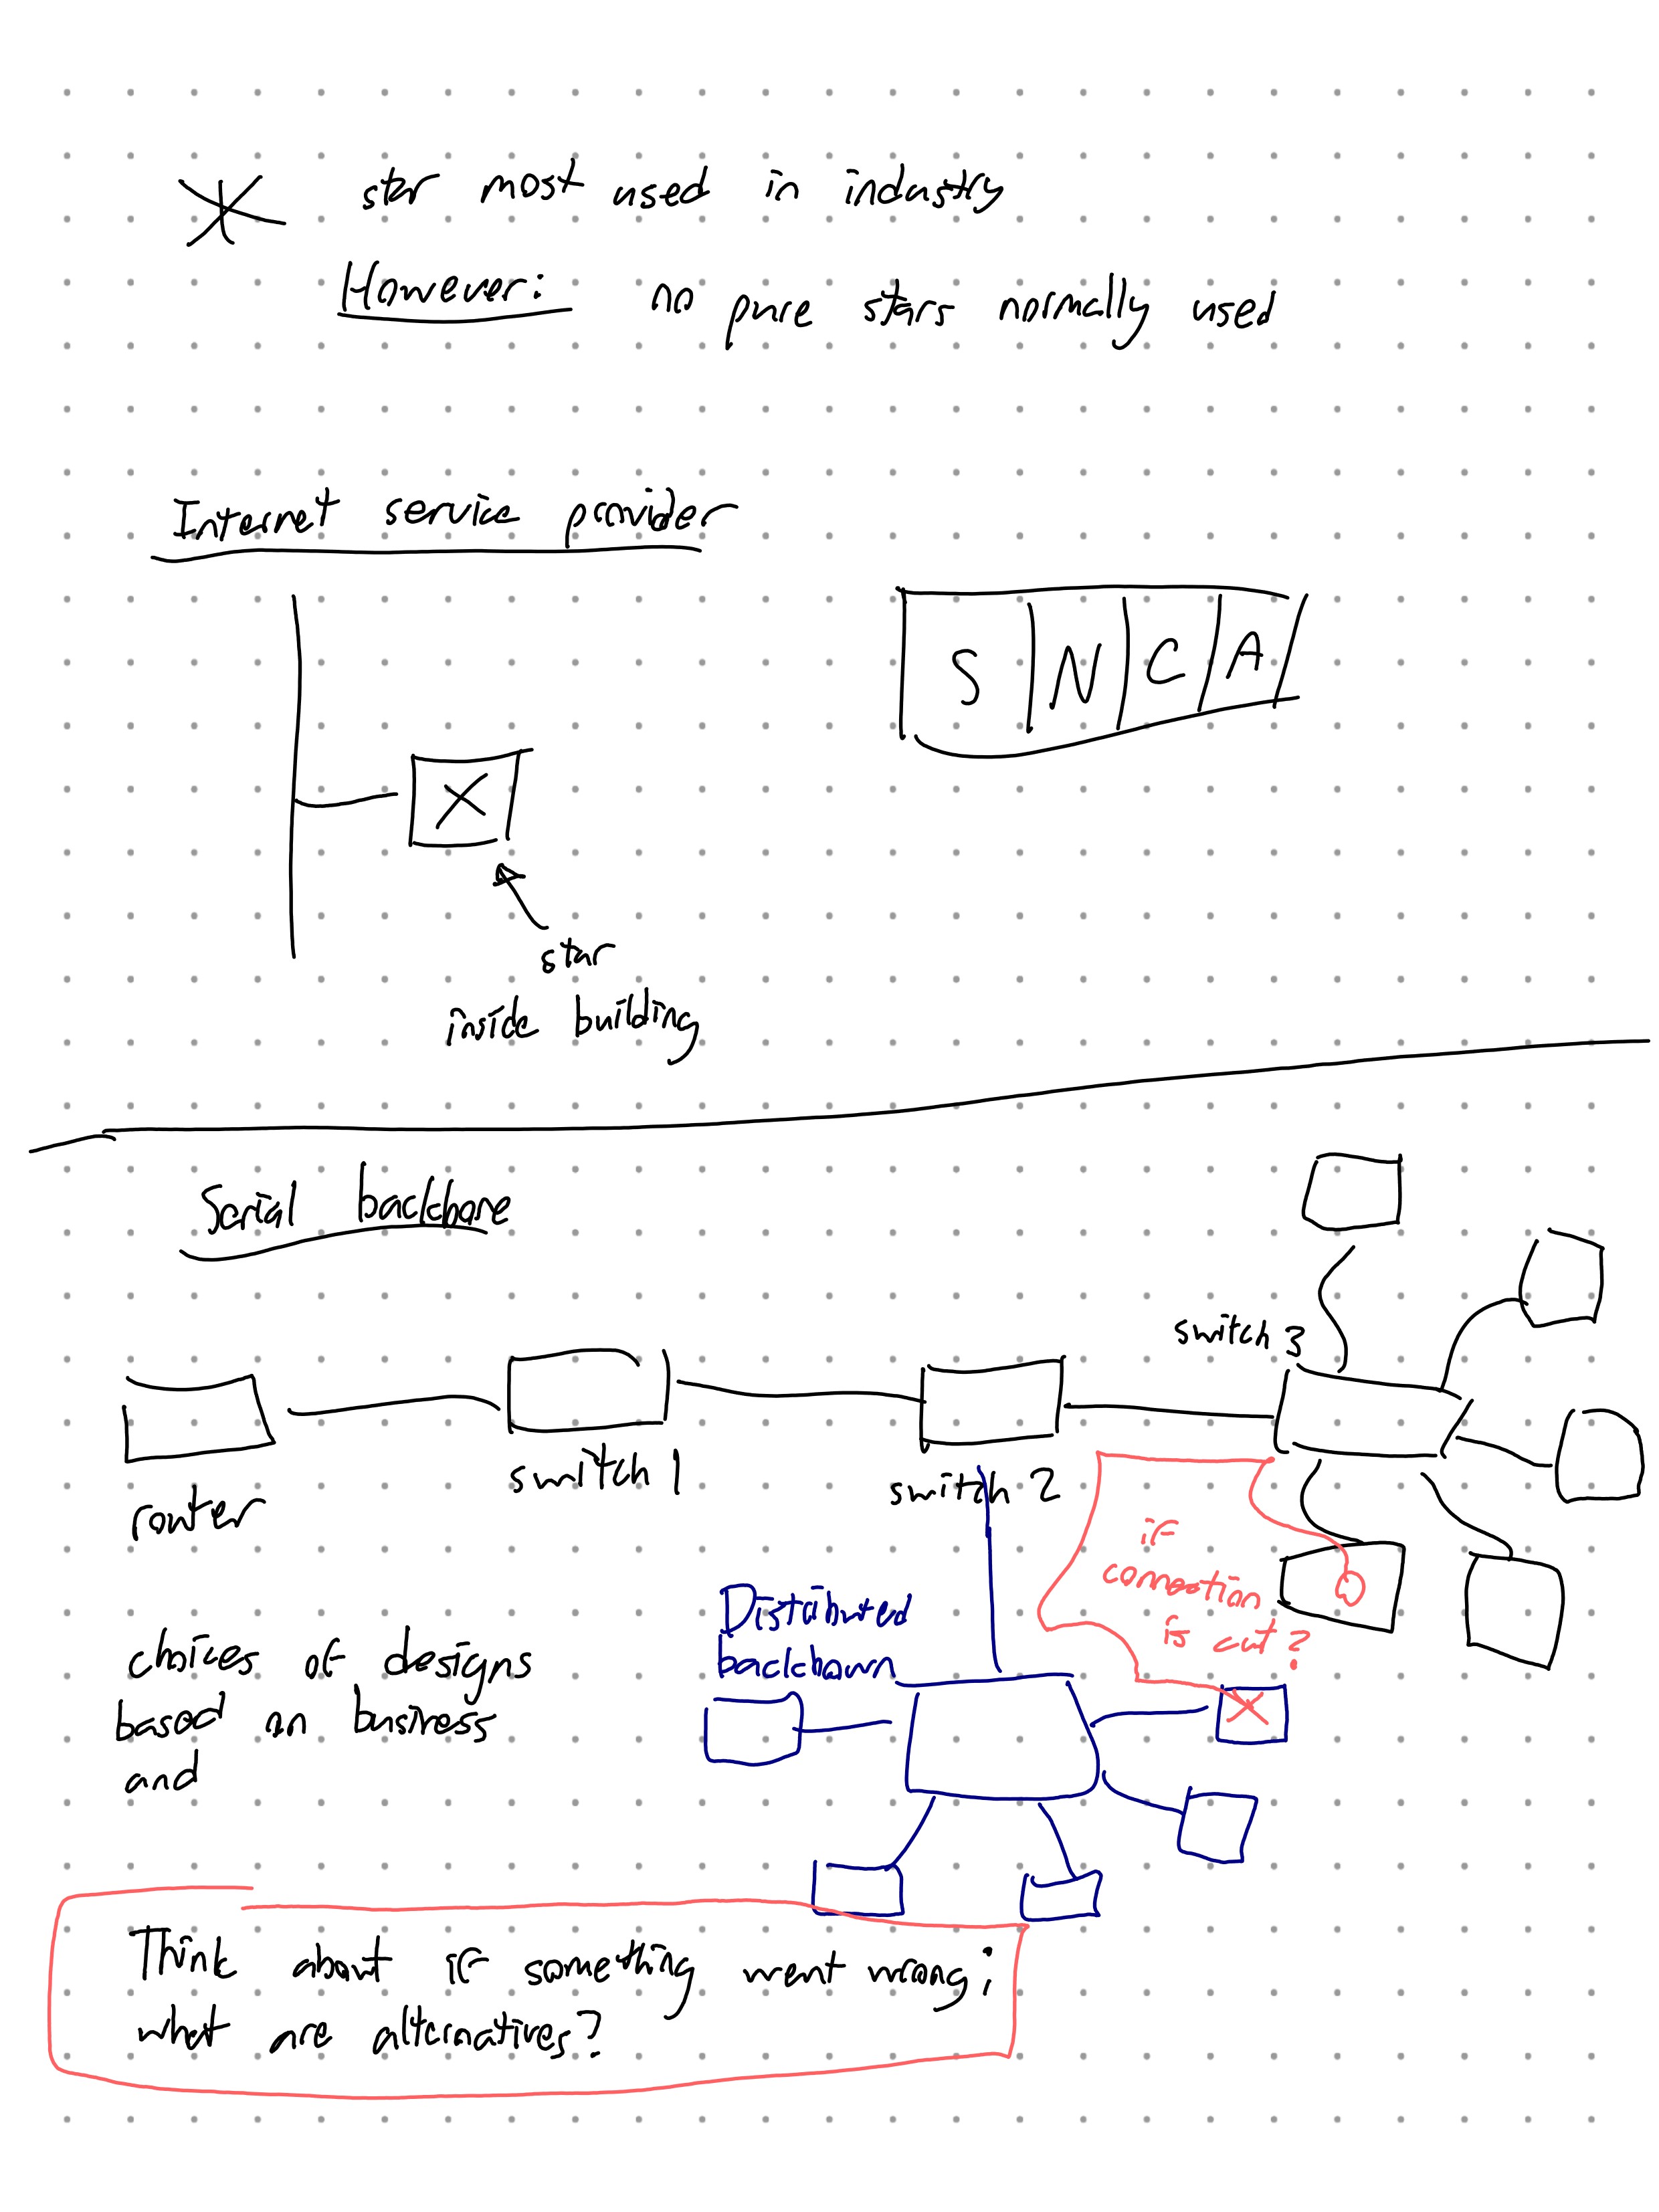 star most used in industry
However: no pure stars normally used
Internet service provider
S N C A
star
inside building
Serial backbone
switch 3
router
switch 1
switch 2
if
connection
is cut?
Distributed
backbown
choices of designs
based on business
and
Think about if something went wrong;
what are alternatives?